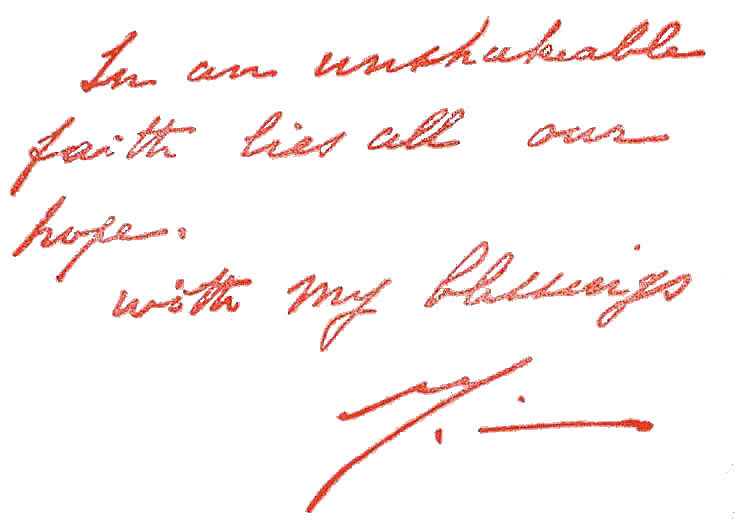 In an unshakeable
faith lies all our
hope.
with my blessings